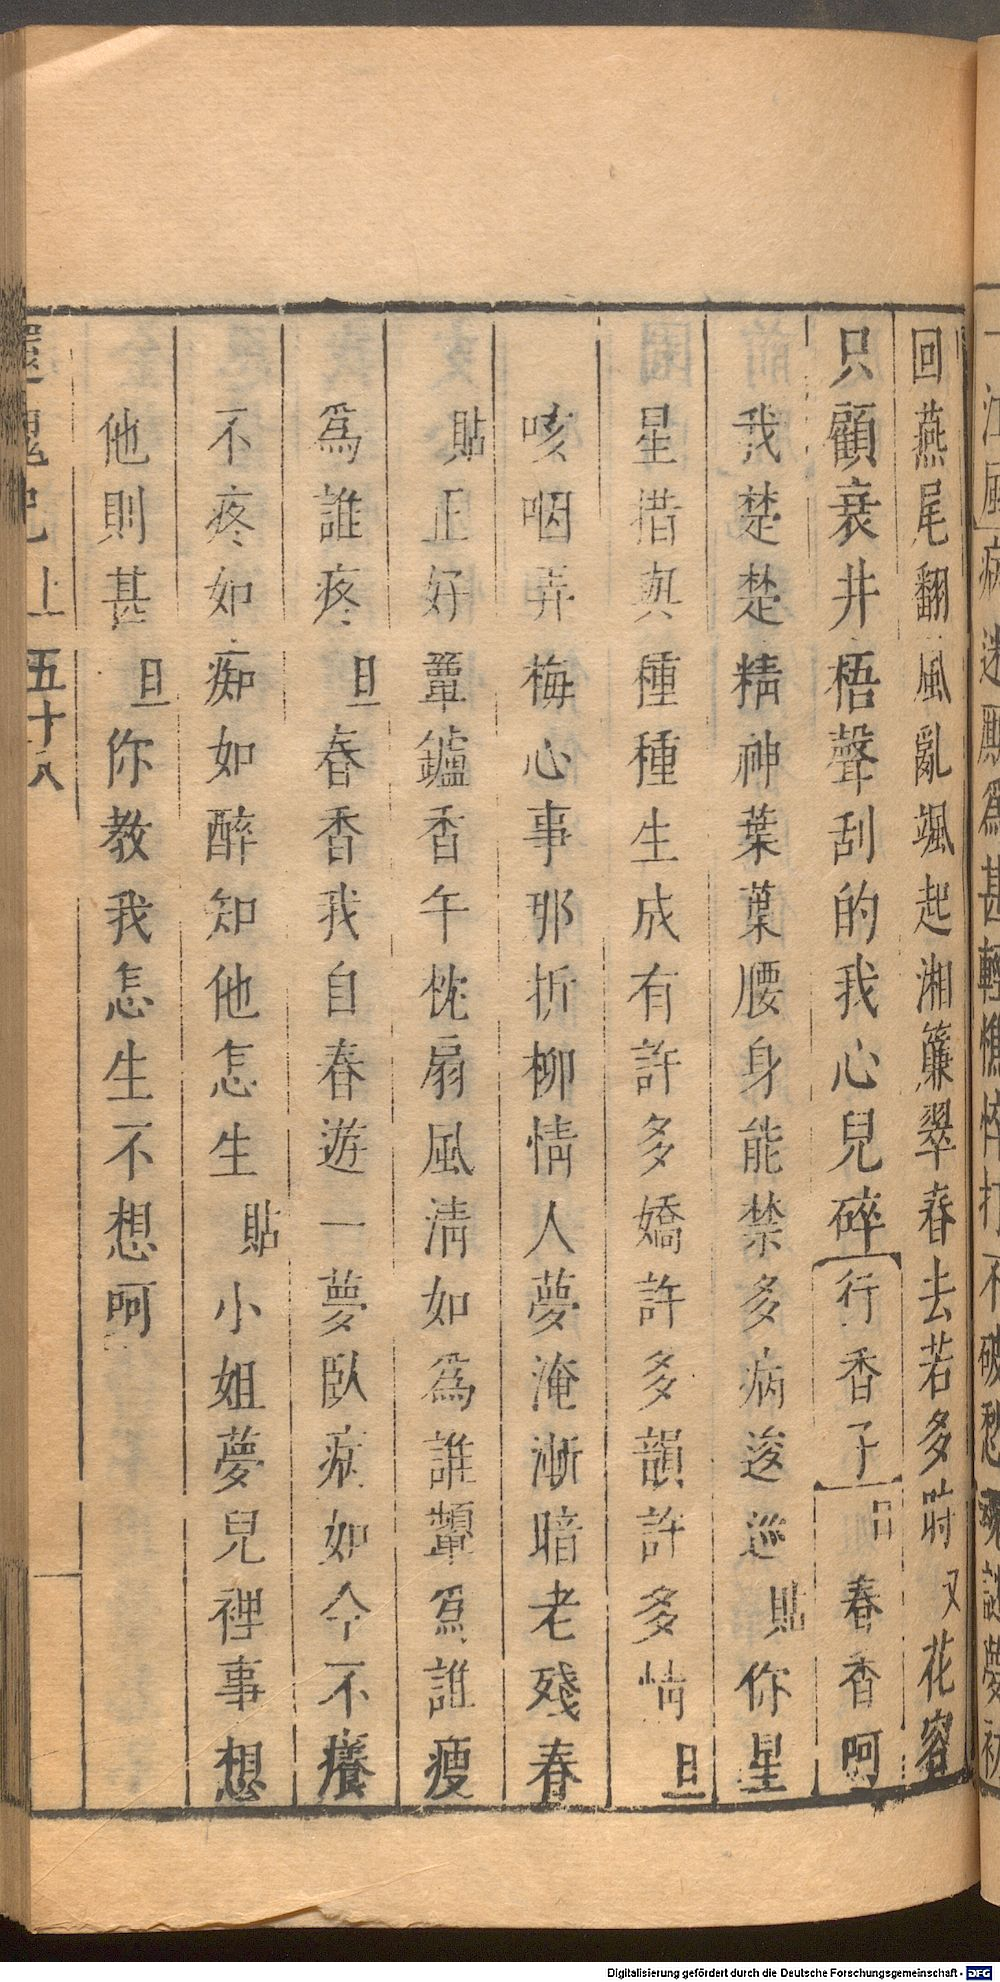 一江風病迷廝爲甚輕憔悴打不破愁魂謎夢初
回燕尾翻風亂颯起湘簾翠春去若多時又花容
只顧衰井梧聲刮的我心兒碎行香子旦春香呵
我楚楚精神葉葉腰身能禁多病逡巡貼你星
星措與種種生成有許多嬌許多韻許多情旦
咳咽弄梅心事那折柳情人夢淹漸暗老殘春
貼正好簟鑪香午枕扇風淸如爲誰顰爲誰瘦
爲誰疼旦春香我自春遊一夢臥病如今不癢
不疼如痴如醉知他怎生貼小姐夢兒裡事想
他則甚旦你教我怎生不想呵
還魂記上 五十八
Digitalisierung gefördert durch die Deutsche Forschungsgemeinschaft - DFG